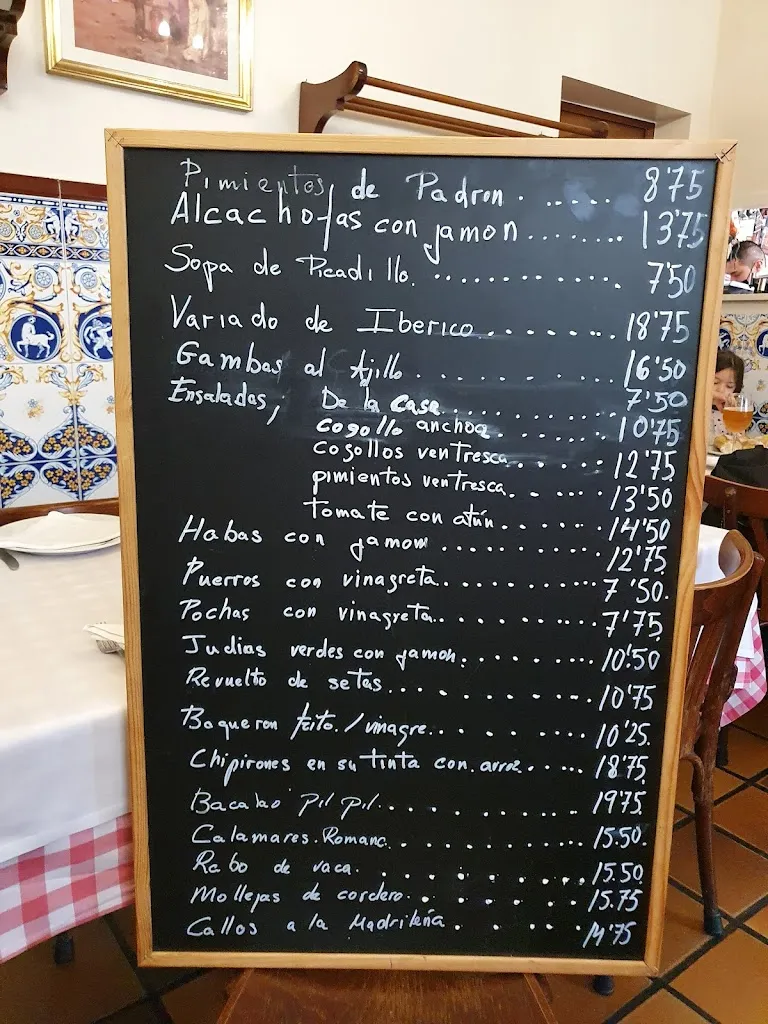 Pimientos de Padron . ..... 8'75
Alcachofas con jamon ........ 13'75
Sopa de Picadillo. ............. 7'50
Variado de Iberico......... 18'75
Gambas al Ajillo . . . . . . . . . . 16'50
Ensaladas, De la Casa............. 7'50
cogollo anchoa......... 10'75
cogollos ventresca....... 12'75
pimientos ventresca....... 13'50
tomate con atún........ 14'50
Habas con jamon ............. 12'75
Puerros con vinagreta............. 7'50.
Pochas con vinagreta............. 7'75
Judias verdes con jamon.......... 10'50
Revuelto de setas............... 10'75
Boqueron frito./vinagre......... 10'25.
Chipirones en su tinta con. arroz..... 18'75.
Bacalao pil pil............. 19'75.
Calamares. Romana............. 15.50.
Rabo de vaca. ............ 15.50
Mollejas de cordero........... 15.75
Callos a la Madrileña. ........ 14'75